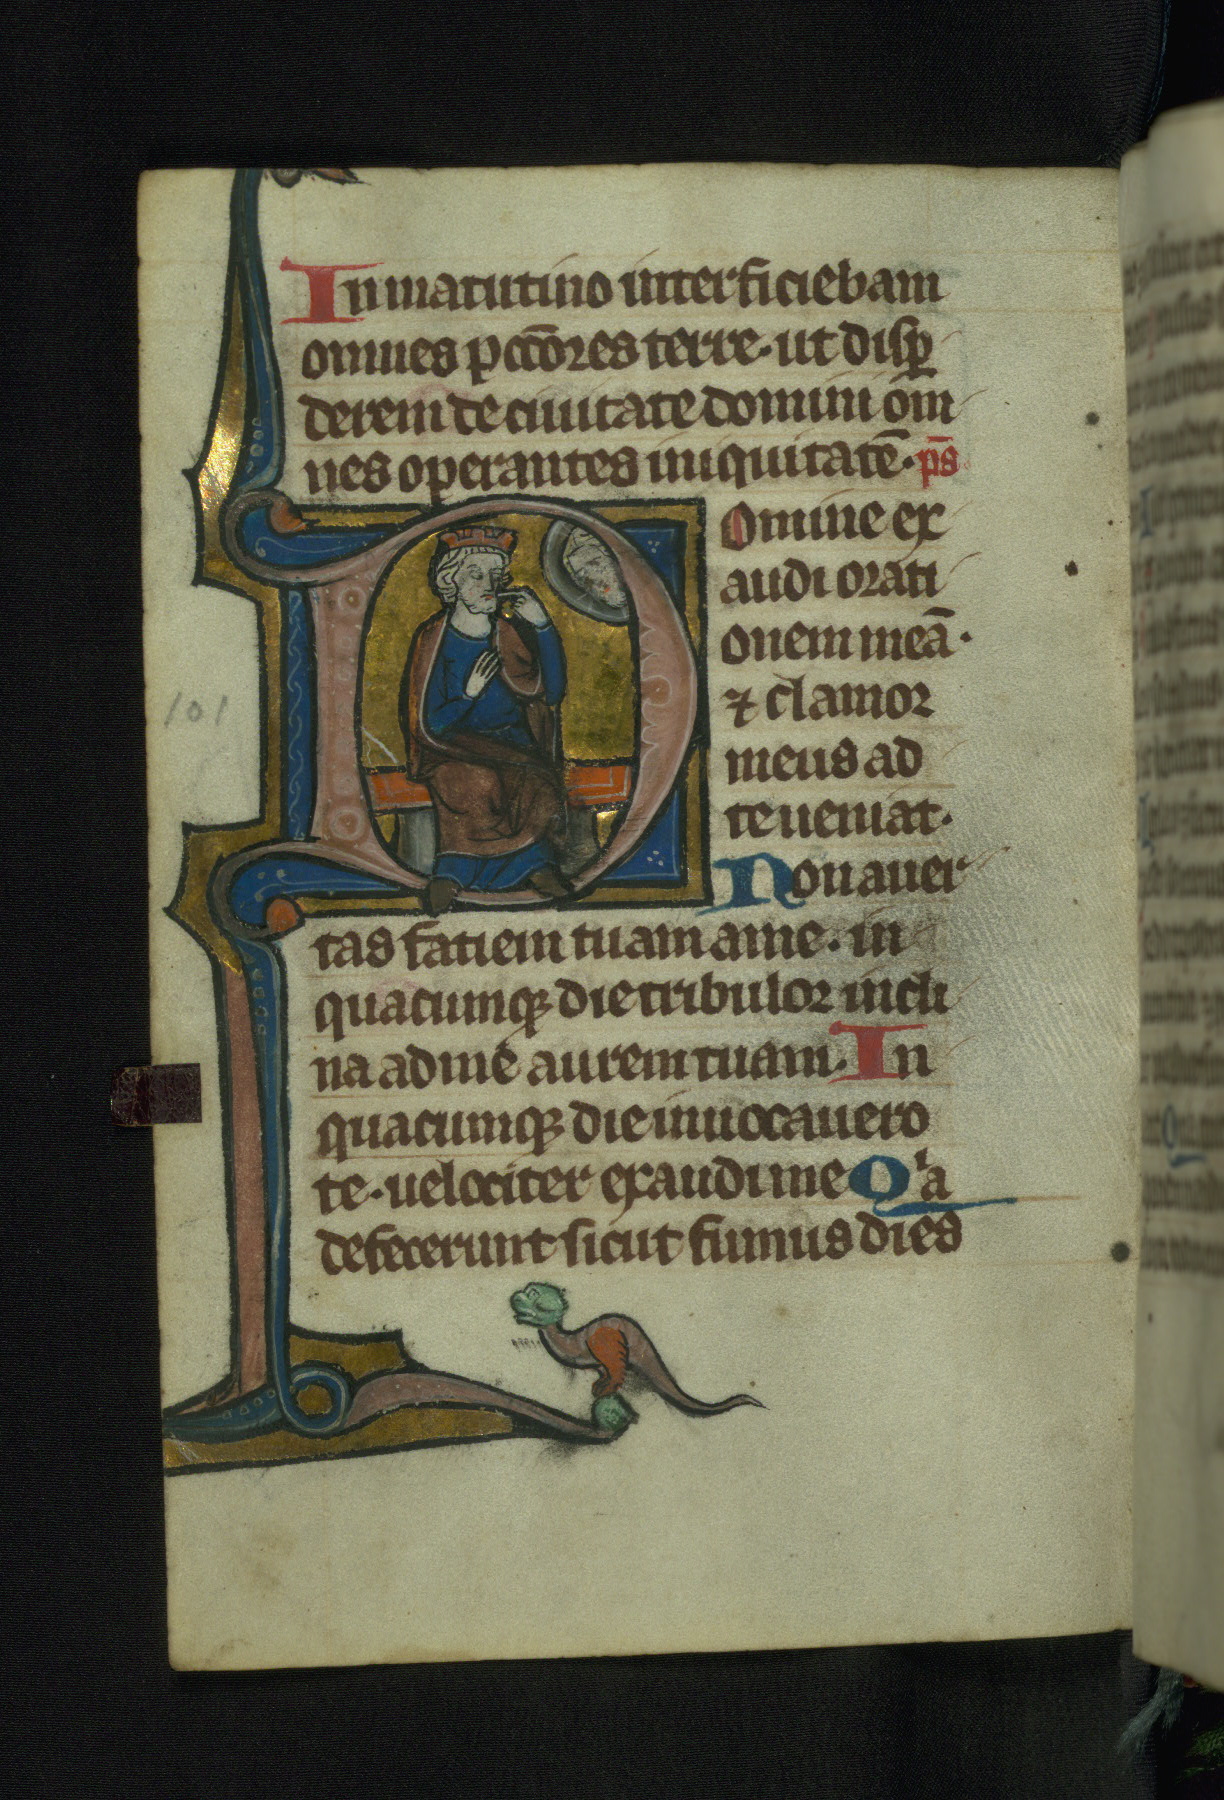 In matutino interficiebam
omnes pcc̄ores terre · ut disꝑ
derem de ciuitate domini om̄
nes operantes iniquitatē · ps̄
Domine ex
audi orati
onem meā ·
⁊ clamor
meus ad
te ueniat ·
Non auer
tas fatiem tuam a me · in
quacumqꝫ die tribulor incli
na ad me aurem tuam · In
quacumqꝫ die inuocauero
te · uelociter exaudi me Qͥa
defecerunt sicut fumus dies
101